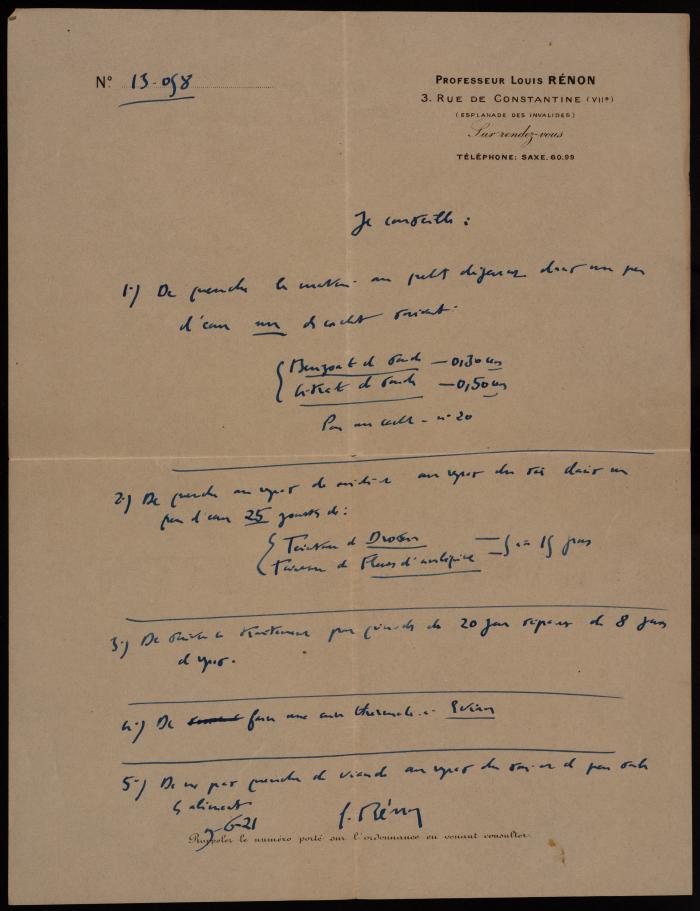 N° 13-098
PROFESSEUR LOUIS RÉNON
3, RUE DE CONSTANTINE (VIIe)
(ESPLANADE DES INVALIDES)
Sur rendez-vous
TÉLÉPHONE: SAXE. 60.99
Je conseille :
1-) De prendre le matin au petit déjeuner dans un peu
d'eau un cachet suivant :
Benzoate de soude — 0,30
Citrate de soude — 0,50
Pour un cachet - n° 20
2-) De prendre au repas de midi et au repas du soir dans un
peu d'eau 25 gouttes de :
Teinture de Drosera
Teinture de Fleurs d'aubépine } aa 15 grs
3-) De suivre ce traitement par périodes de 20 jours séparées de 8 jours
de repos.
4-) De faire une cure thermale à Evian
5-) De ne pas prendre de viande au repas du soir et de peu saler
les aliments
6-21
L. Rénon
Rappeler le numéro porté sur l'ordonnance en venant consulter.